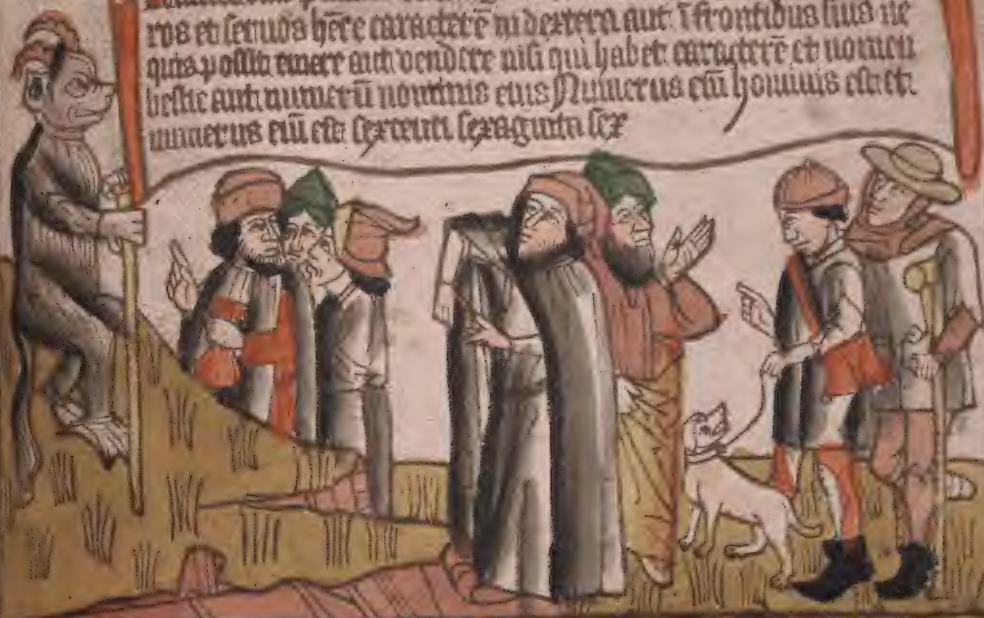 ros et seruos hēre caracterē in dextera aut ī frontibus suis ne
quis possit emere aut vendere nisi qui habet caracterē et nomen
bestie aut numerū nominis eius Numerus eiū hominis est et
numerus eiū est sexcenti sexaginta sex